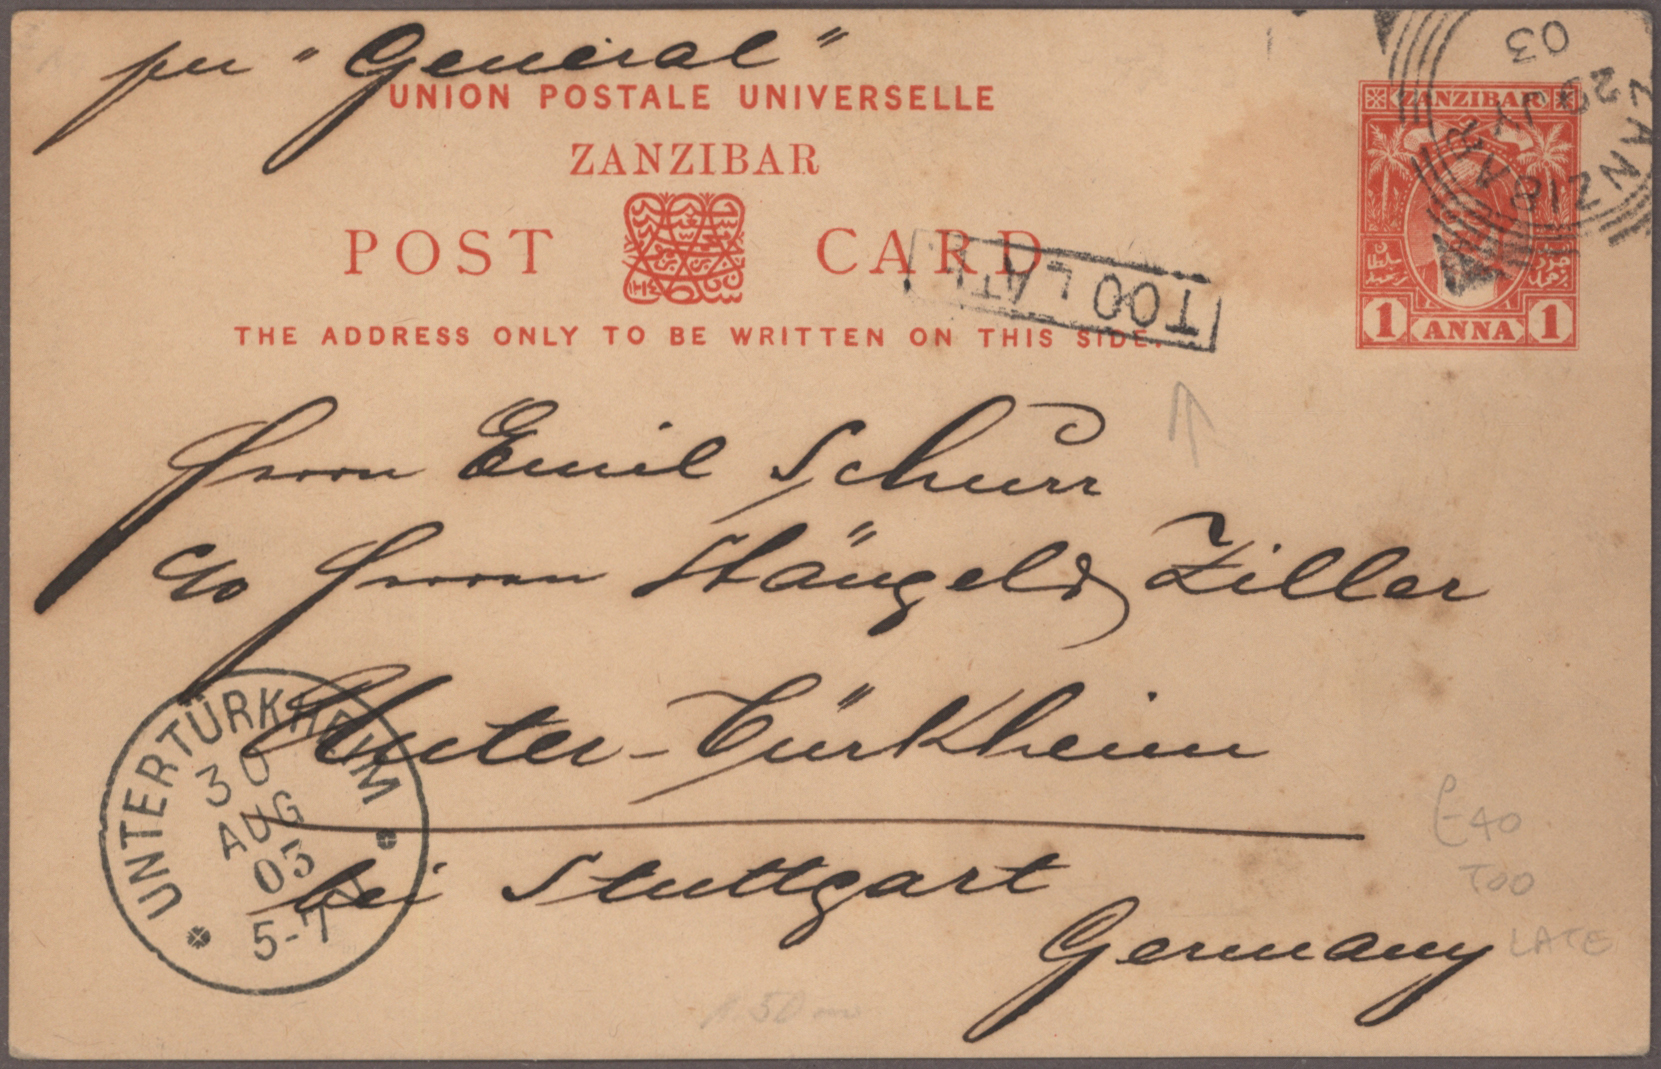 per "General"
UNION POSTALE UNIVERSELLE
ZANZIBAR
POST CARD
THE ADDRESS ONLY TO BE WRITTEN ON THIS SIDE.
TOO LATE
ZANZIBAR
1 ANNA 1
ZANZIBAR
29 JY
03
Herrn Emil Schurr
c/o Herren Stängel & Ziller
Unter-Türkheim
bei Stuttgart
Germany
UNTERTÜRKHEIM
30
AUG
03
5-7 N
£40
TOO
LATE